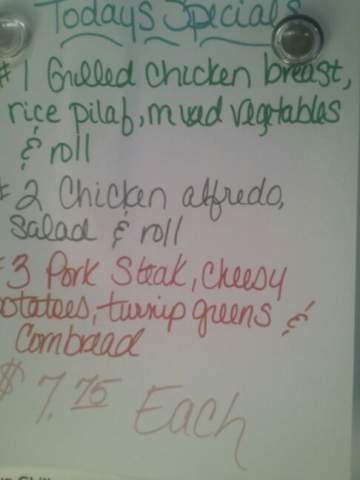 Todays Specials
# 1 Grilled Chicken breast,
rice pilaf, mixed vegetables
& roll
# 2 Chicken alfredo,
Salad & roll
#3 Pork Steak, Cheesy
potatoes, turnip greens &
Cornbread
$ 7.75 Each